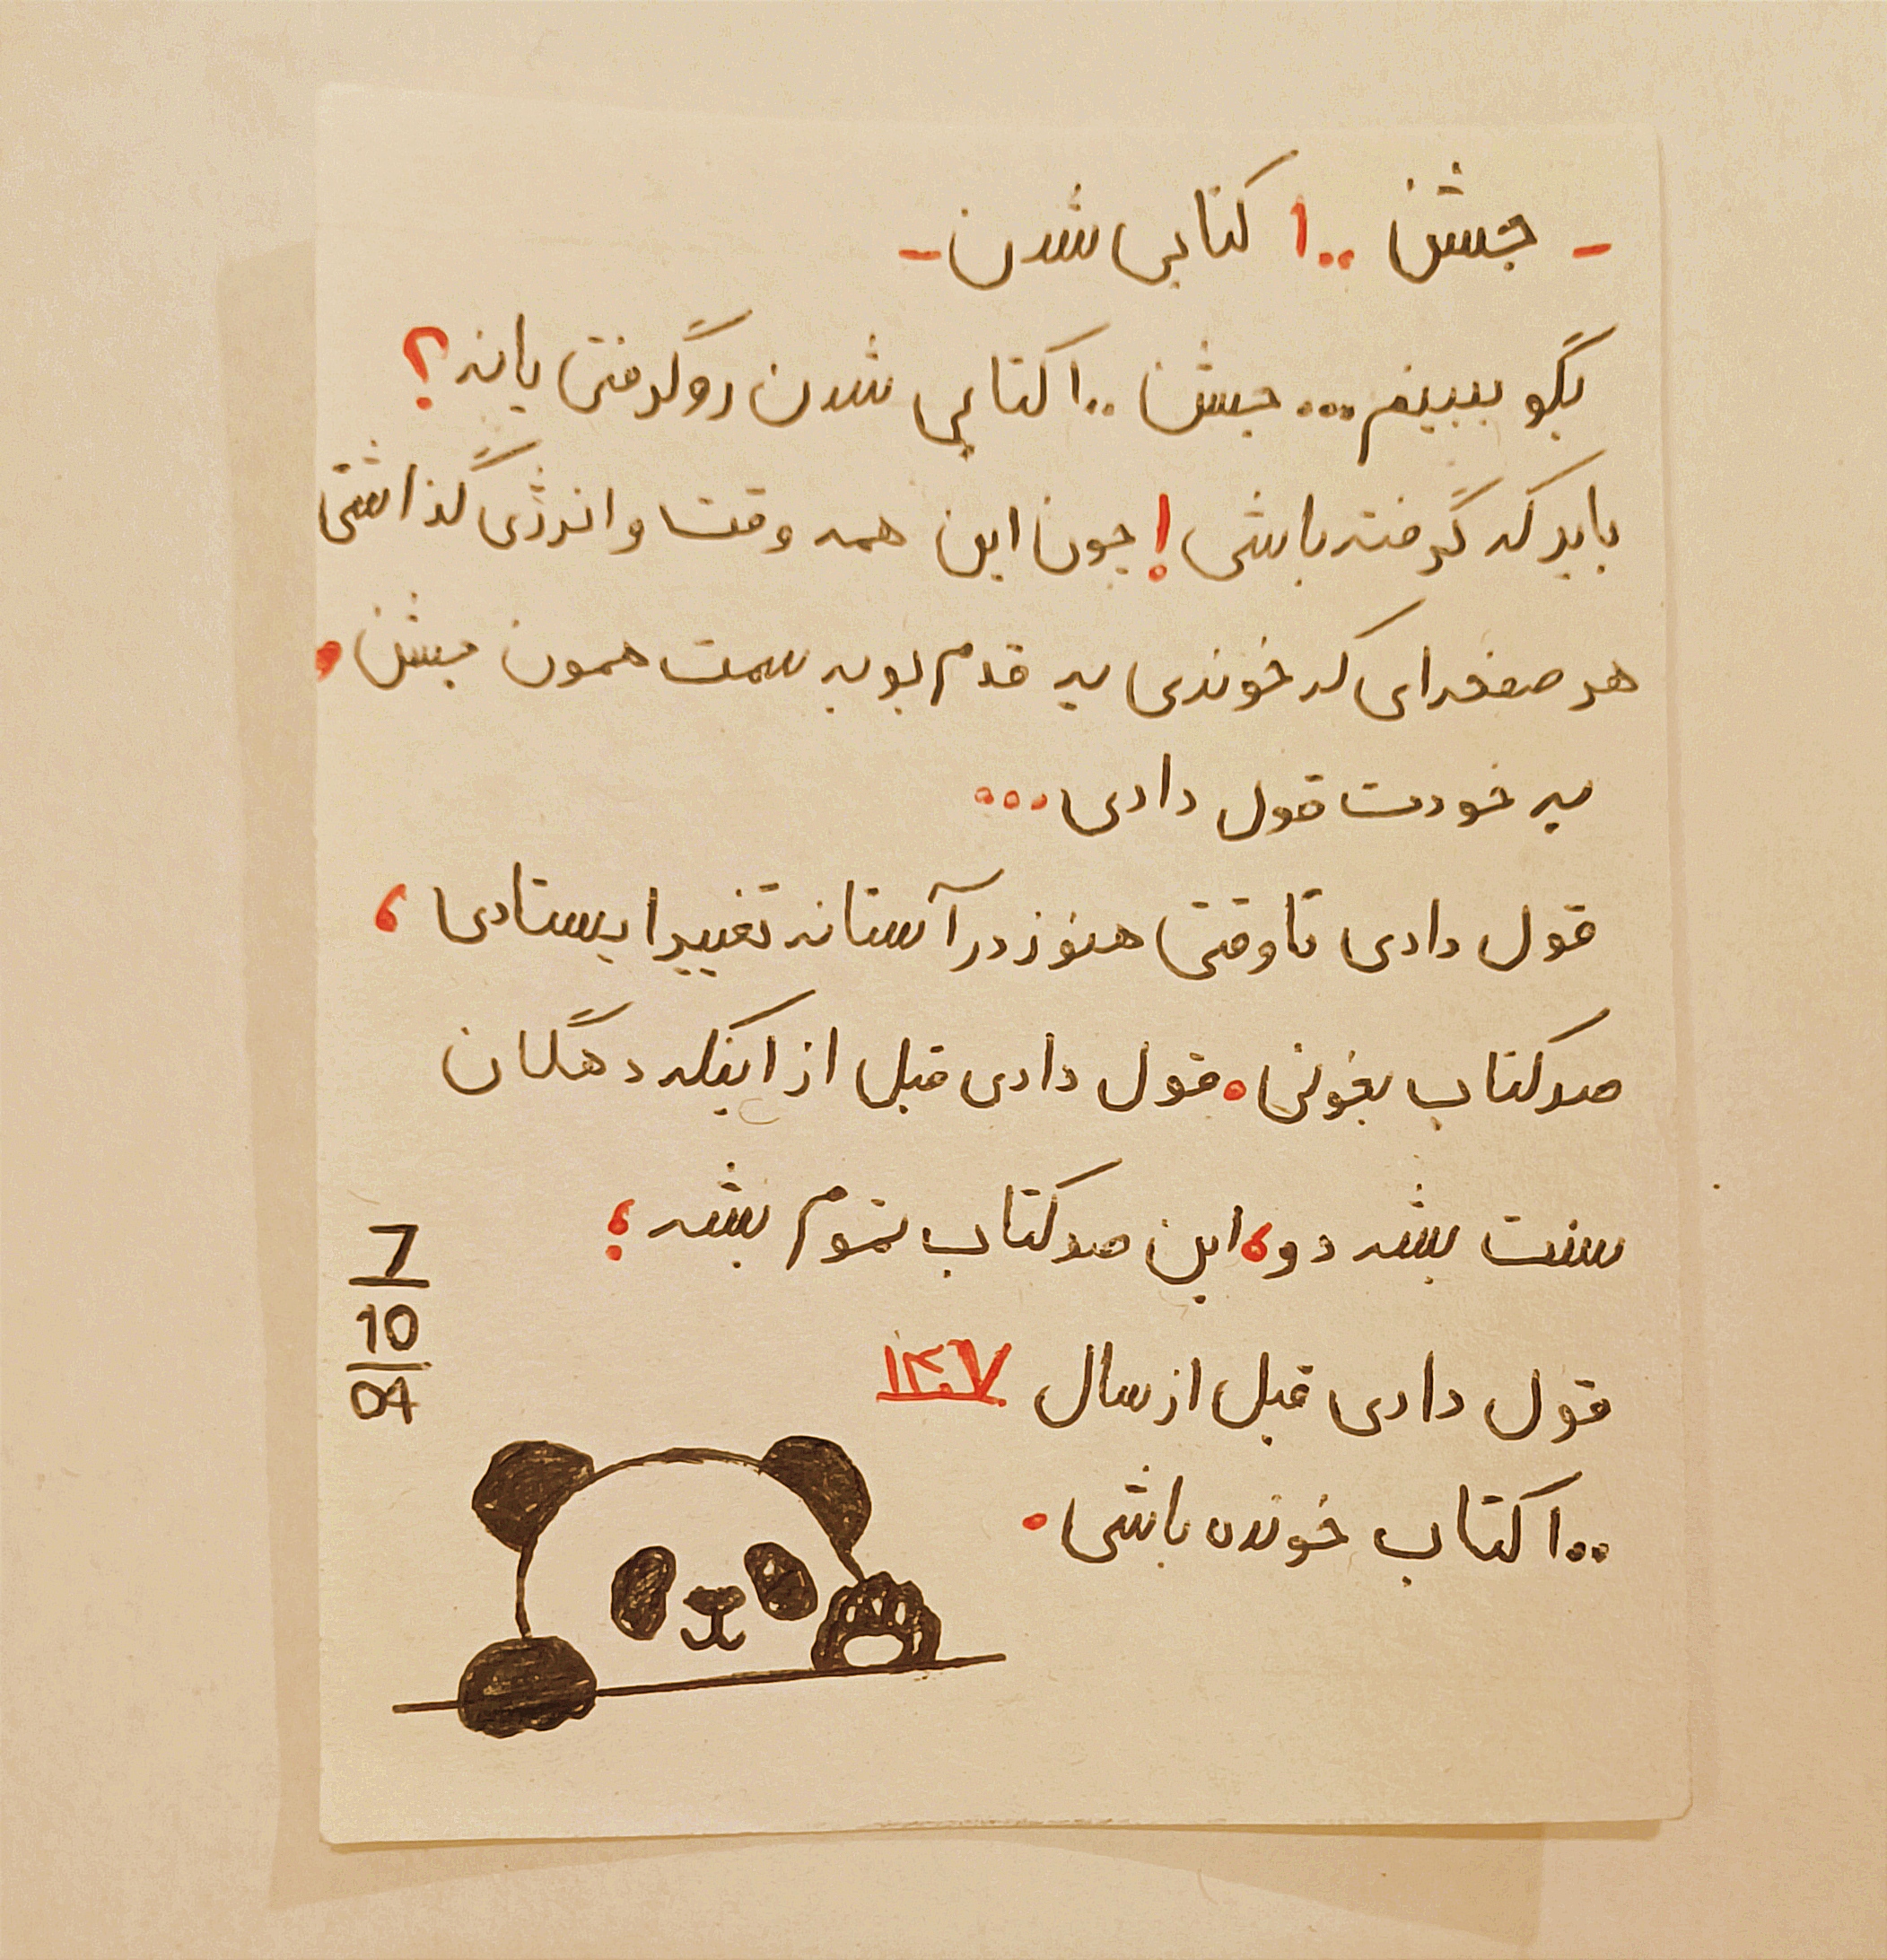 - جشن ۱۰۰ کتابی شدن -
بگو ببینم... جشن ۱۰۰ کتابی شدن رو گرفتی یا نه؟
باید که گرفته باشی! چون این همه وقت و انرژی گذاشتی
هر صفحه‌ای که خوندی یه قدم بو به سمت همون جشن.
به خودت قول دادی...
قول دادی تا وقتی هنوز در آستانه تغییر ایستادی،
صد کتاب بخونی. قول دادی قبل از اینکه دهگان
سنت بشه دو، این صد کتاب تموم بشه؛
قول دادی قبل از سال ۱۴۰۷
۱۰۰ کتاب خونده باشی.
7
10
04